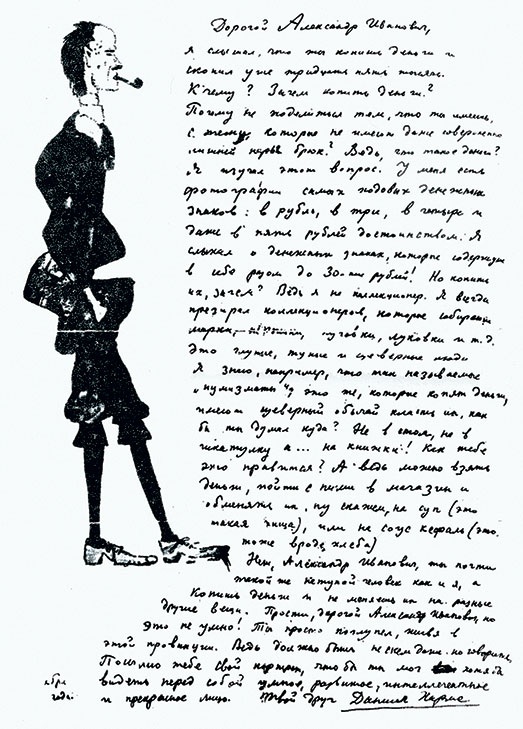 Дорогой Александр Иванович,
я слышал, что ты копишь деньги и
скопил уже тридцать пять тысяч.
К чему? Зачем копить деньги?
Почему не поделиться тем, что ты имеешь,
с теми, которые не имеют даже совершенно
лишней пары брюк? Ведь, что такое деньги?
Я изучал этот вопрос. У меня есть
фотографии самых ходовых денежных
знаков: в рубль, в три, в четыре и
даже в пять рублей достоинством. Я
слыхал о денежных знаках, которые содержат
в себе разом до 30-ти рублей! Но копить
их, зачем? Ведь я не коллекционер. Я всегда
презирал коллекционеров, которые собирают
марки, пуговки, луковки и т.д.
Это глупые, тупые и суеверные люди
Я знаю, например, что так называемые
„нумизматы", это те, которые копят деньги,
имеют суеверный обычай класть их, как
бы ты думал куда? Не в стол, не в
шкатулку а... на книжки! Как тебе
это нравится? А ведь можно взять
деньги, пойти с ними в магазин и
обменять их, ну скажем, на суп (это
такая пища), или на соус кефаль (это
тоже вроде хлеба)
Нет, Александр Иванович, ты почти
такой же нетупой человек как и я, а
копишь деньги и не меняешь их на разные
другие вещи. Прости, дорогой Александр Иванович, но
это не умно! Ты просто поглупел, живя в
этой провинции. Ведь должно быть не с кем даже поговорить.
Посылаю тебе свой портрет, что бы ты мог хотя бы
видеть перед собой умное, развитое, интеллигентное
и прекрасное лицо. Твой друг Даниил Хармс